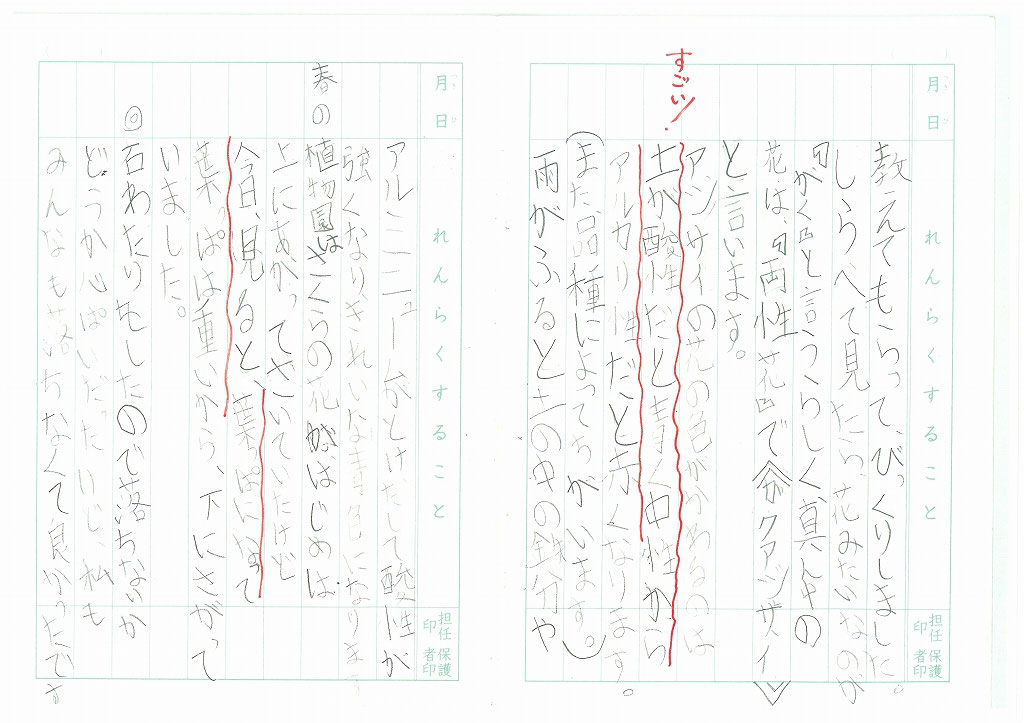 月 日
れんらくすること
担任印
保護者印
教えてもらって、びっくりしました。
しらべて見たら、花みたいなのが
「がく」と言うらしく、真ん中の
花は、「両性花」で《ガクアジサイ》
と言います。
アジサイの花の色がかわるのは
すごい!
土が酸性だと青く中性から
アルカリ性だと赤くなります。
(また品種によってちがいます。)
雨がふると土の中の鉄分や
月 日
れんらくすること
担任印
保護者印
アルミニュームがとけだして酸性が
強くなり、きれいな青色になります
春の植物園はさくらの花がはじめは、
上にあがってさいていたけど
今日、見ると、葉っぱになって
葉っぱは重いから、下にさがって
いました。
◎石わたりをしたので落ちないか
どうか心ぱいだったけど、私も
みんなも落ちなくて良かったです